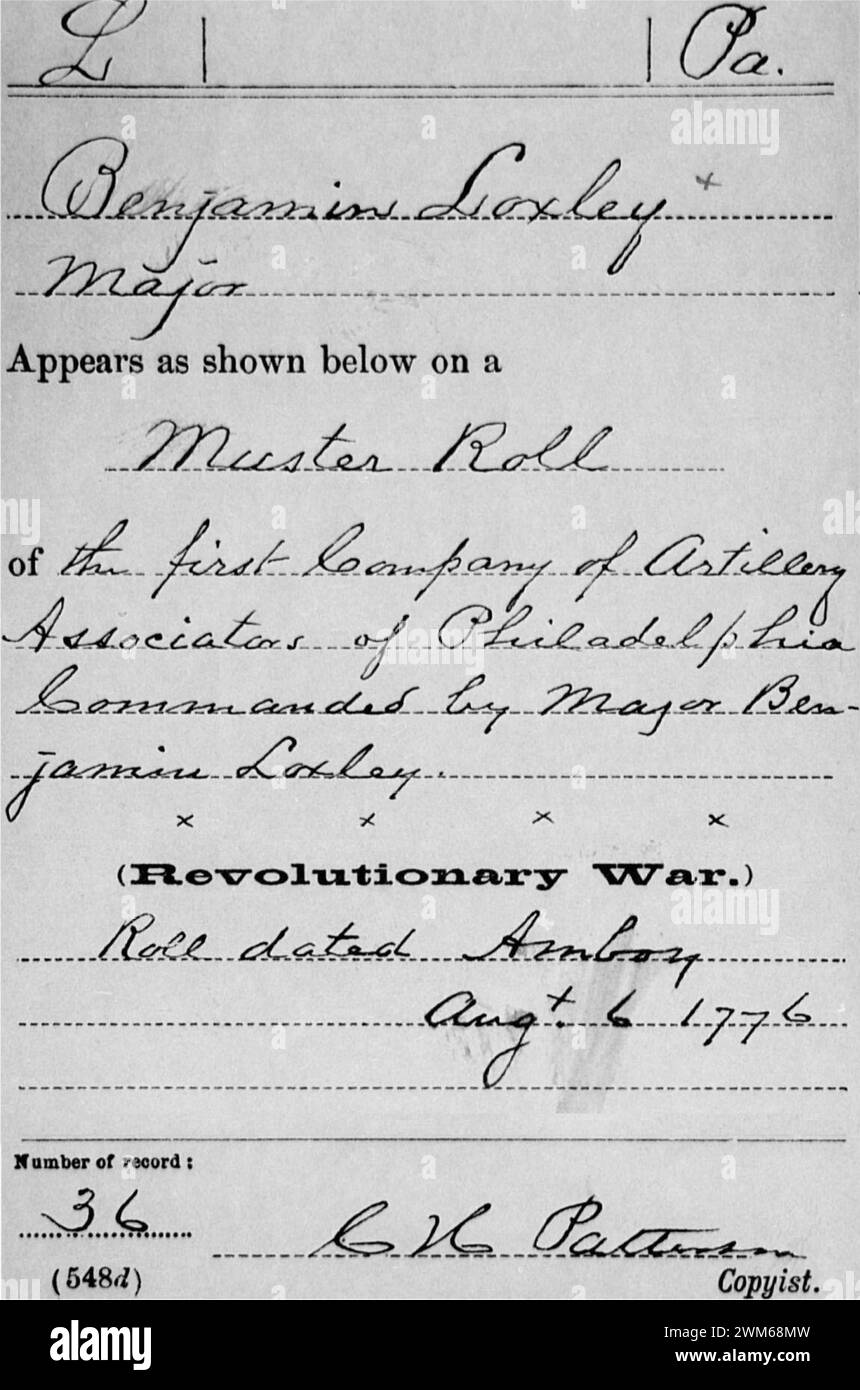 L | | Pa.
Benjamin Loxley x
Major
Appears as shown below on a
Muster Roll
of the first Company of Artillery
Associators of Philadelphia
Commanded by Major Ben-
jamin Loxley.
x x x x
(Revolutionary War.)
Roll dated Amboy
Augt. 6 1776
Number of record:
36
C H Patterson
(548d) Copyist.
alamy
Image ID: 2WM68MW
www.alamy.com